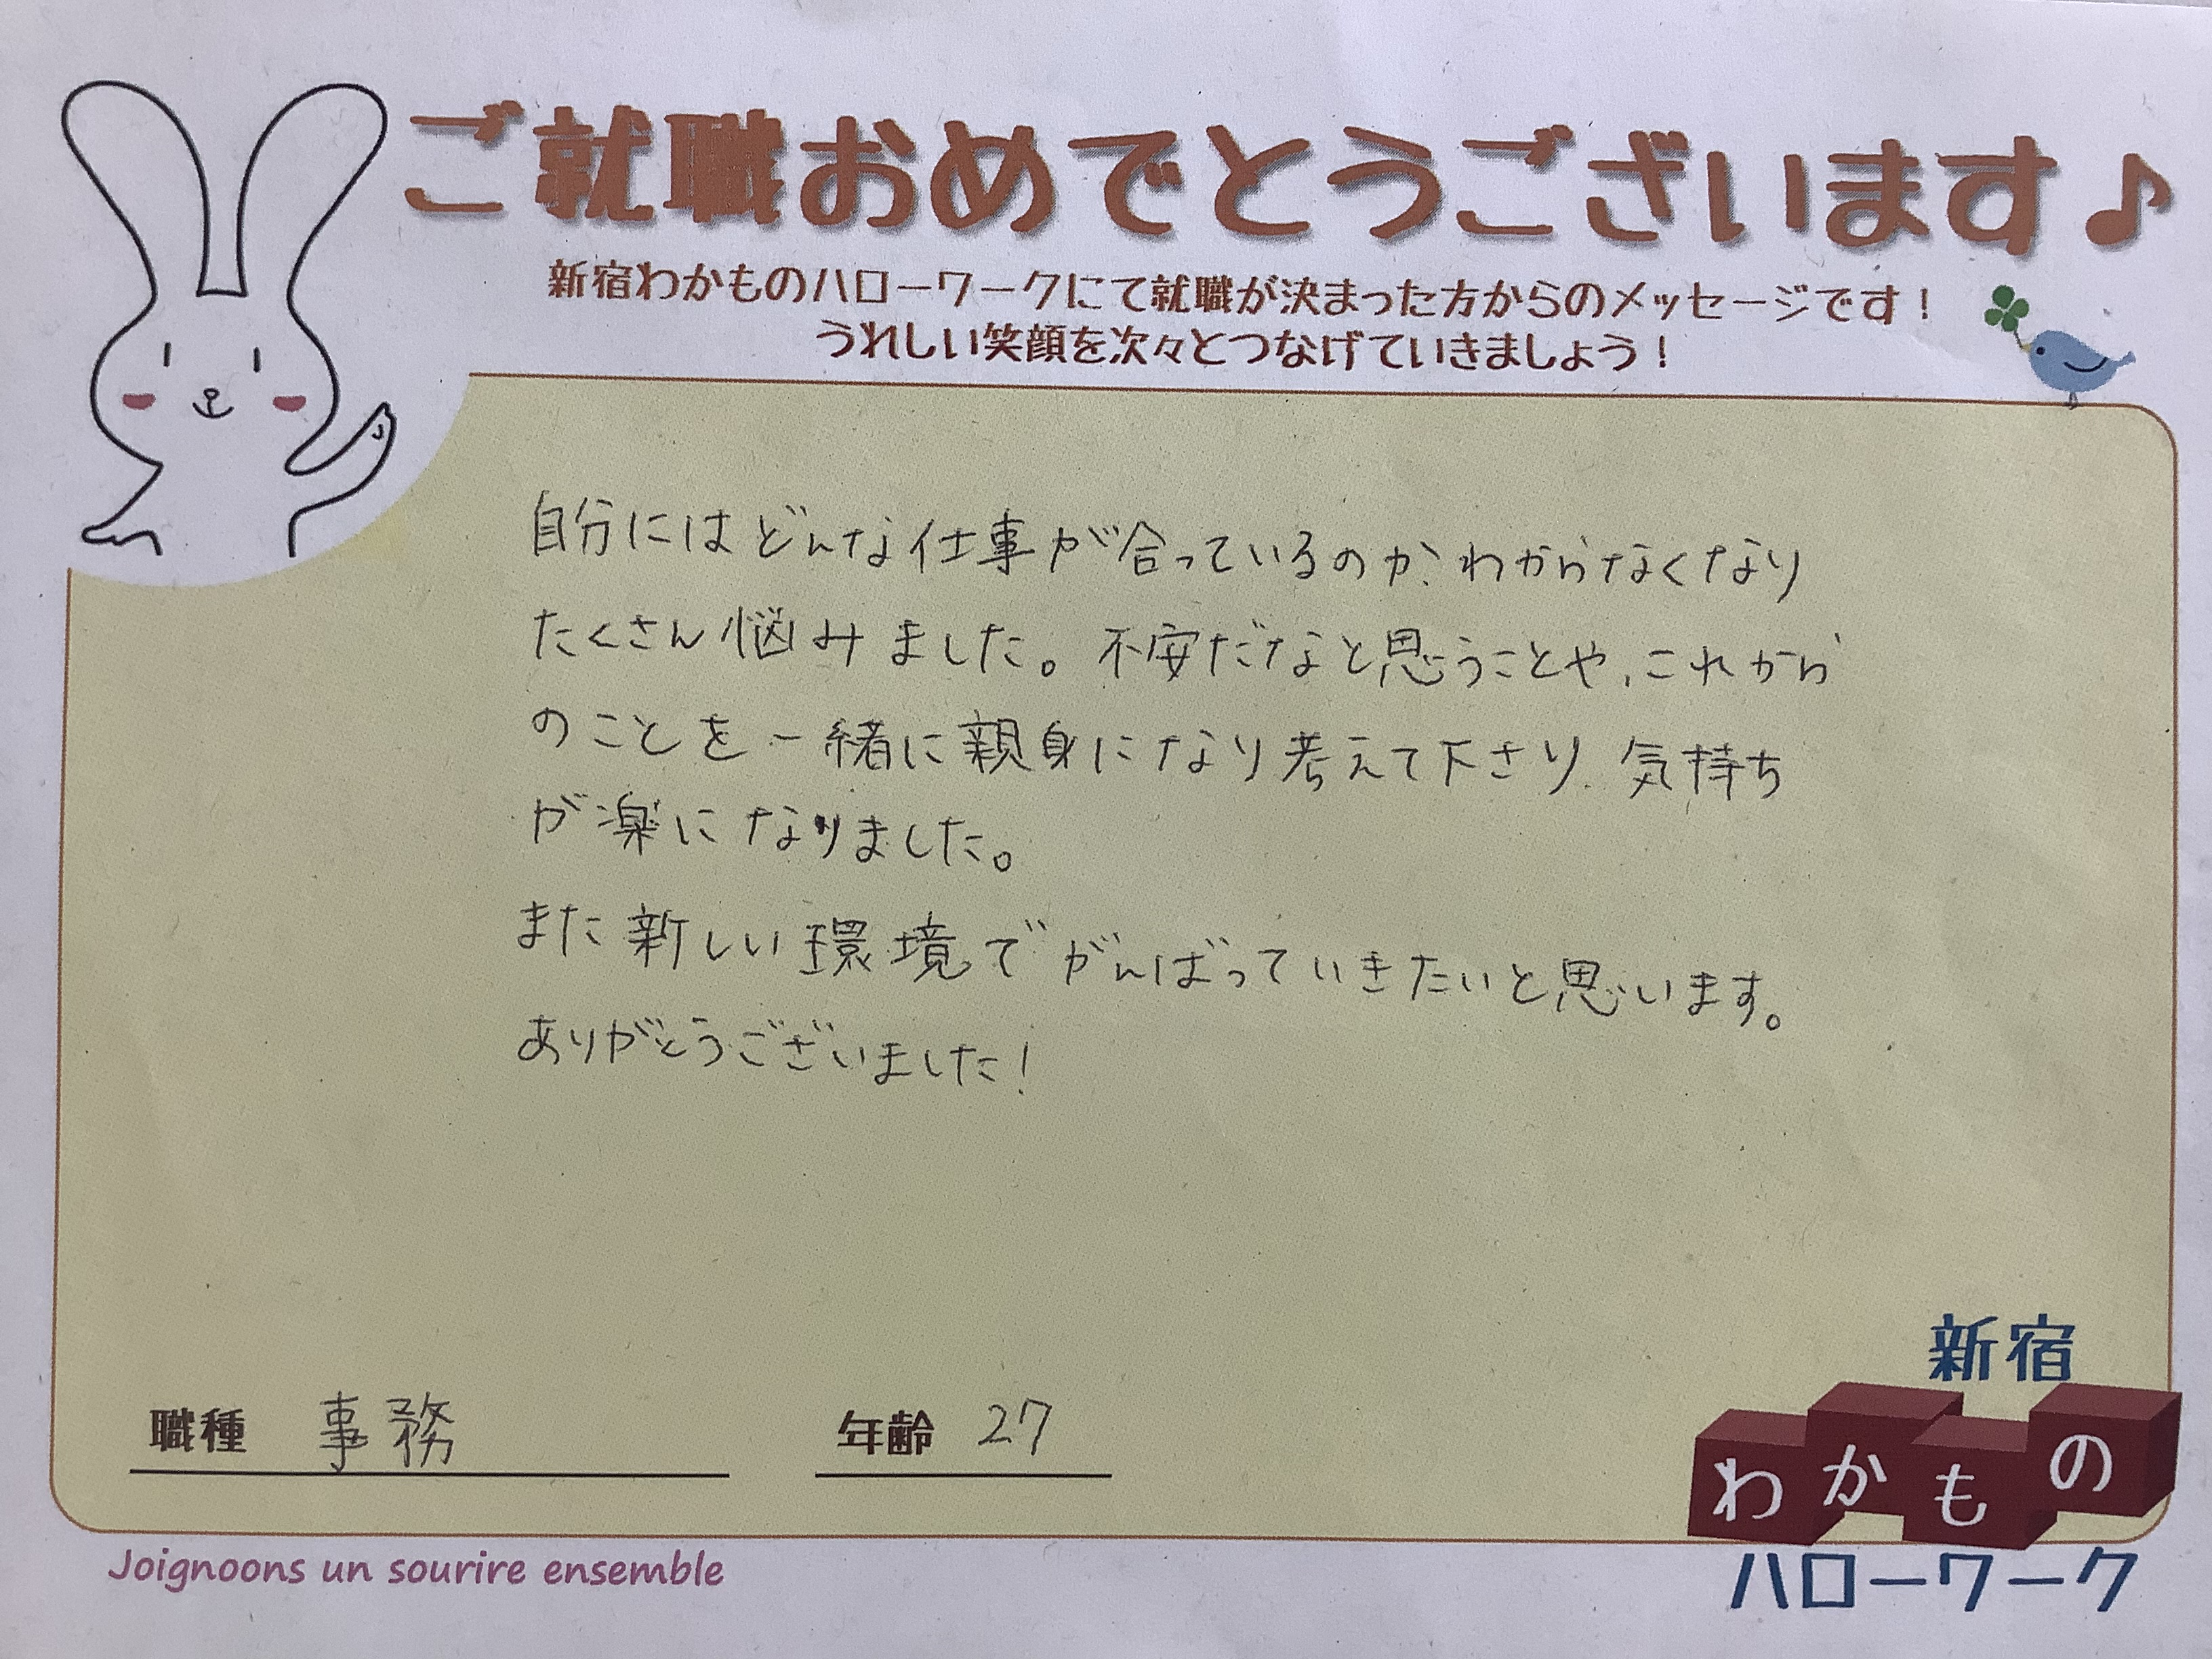 ご就職おめでとうございます♪
新宿わかものハローワークにて就職が決まった方からのメッセージです！
うれしい笑顔を次々とつなげていきましょう！
自分にはどんな仕事が合っているのか、わからなくなり
たくさん悩みました。不安だなと思うことや、これから
のことを一緒に親身になり考えて下さり、気持ち
が楽になりました。
また新しい環境でがんばっていきたいと思います。
ありがとうございました！
職種 事務 年齢 27
新宿
わかもの
ハローワーク
Joignoons un sourire ensemble